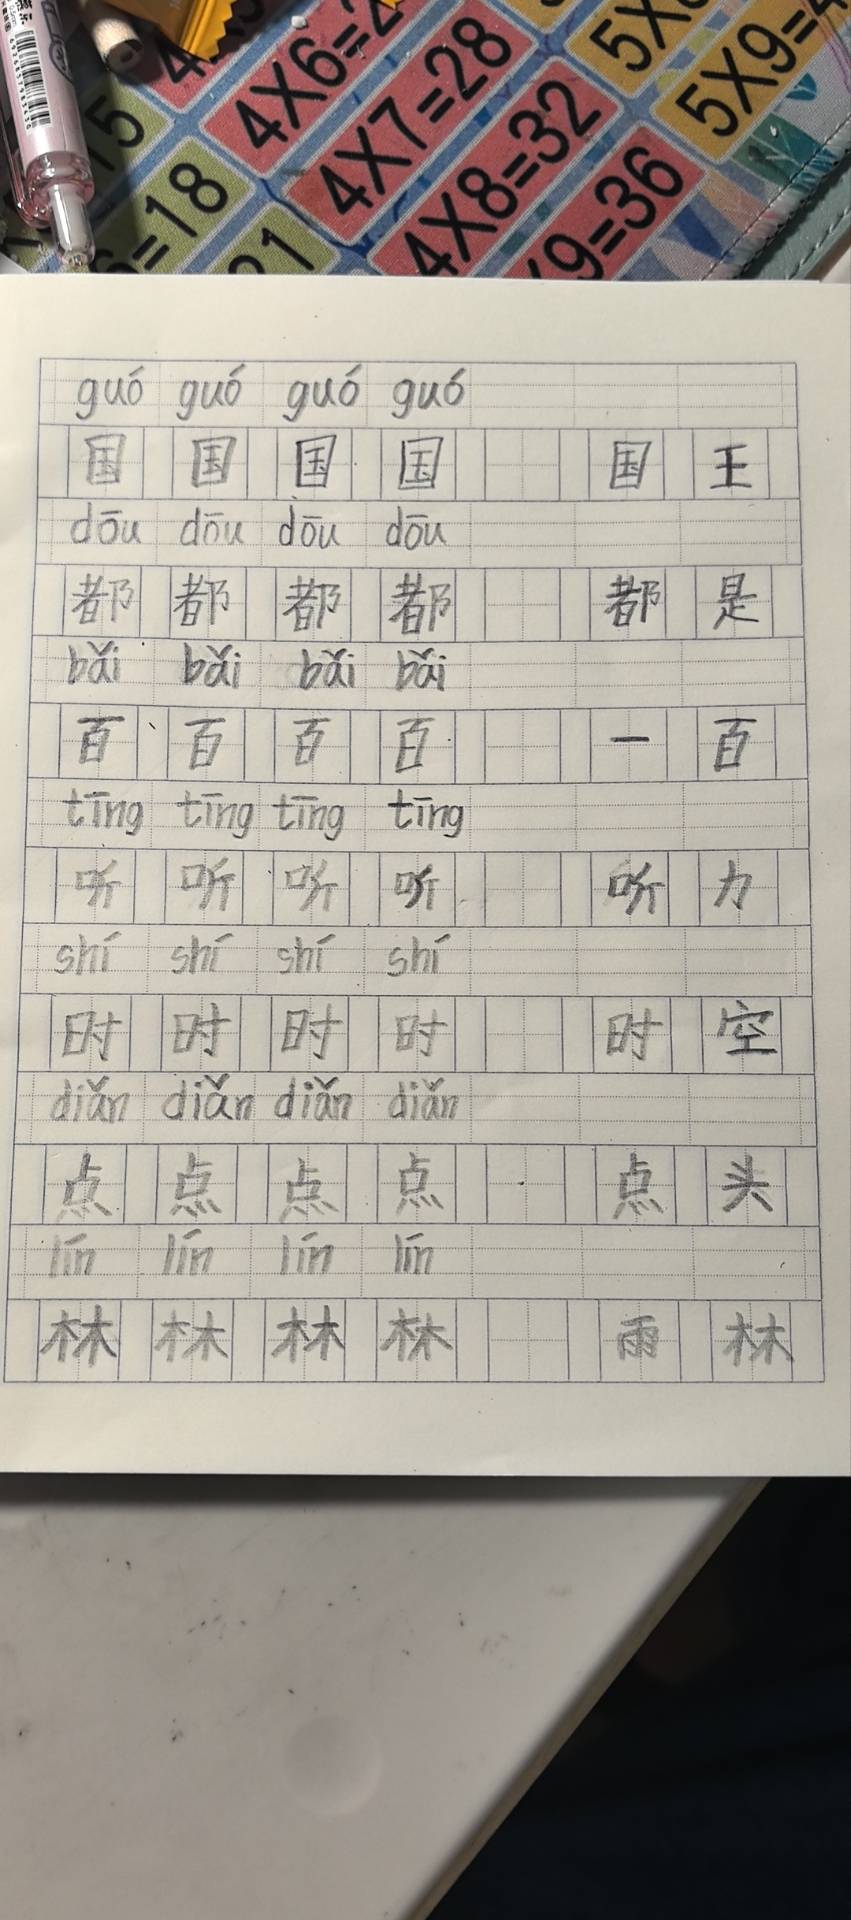 4X6=2
4X7=28
4X8=32
9=36
5X
5X9=4
15
=18
21
guó guó guó guó
国 国 国 国 国 王
dōu dōu dōu dōu
都 都 都 都 都 是
bǎi bǎi bǎi bǎi
百 百 百 百 一 百
tīng tīng tīng tīng
听 听 听 听 听 力
shí shí shí shí
时 时 时 时 时 空
diǎn diǎn diǎn diǎn
点 点 点 点 点 头
lín lín lín lín
林 林 林 林 雨 林